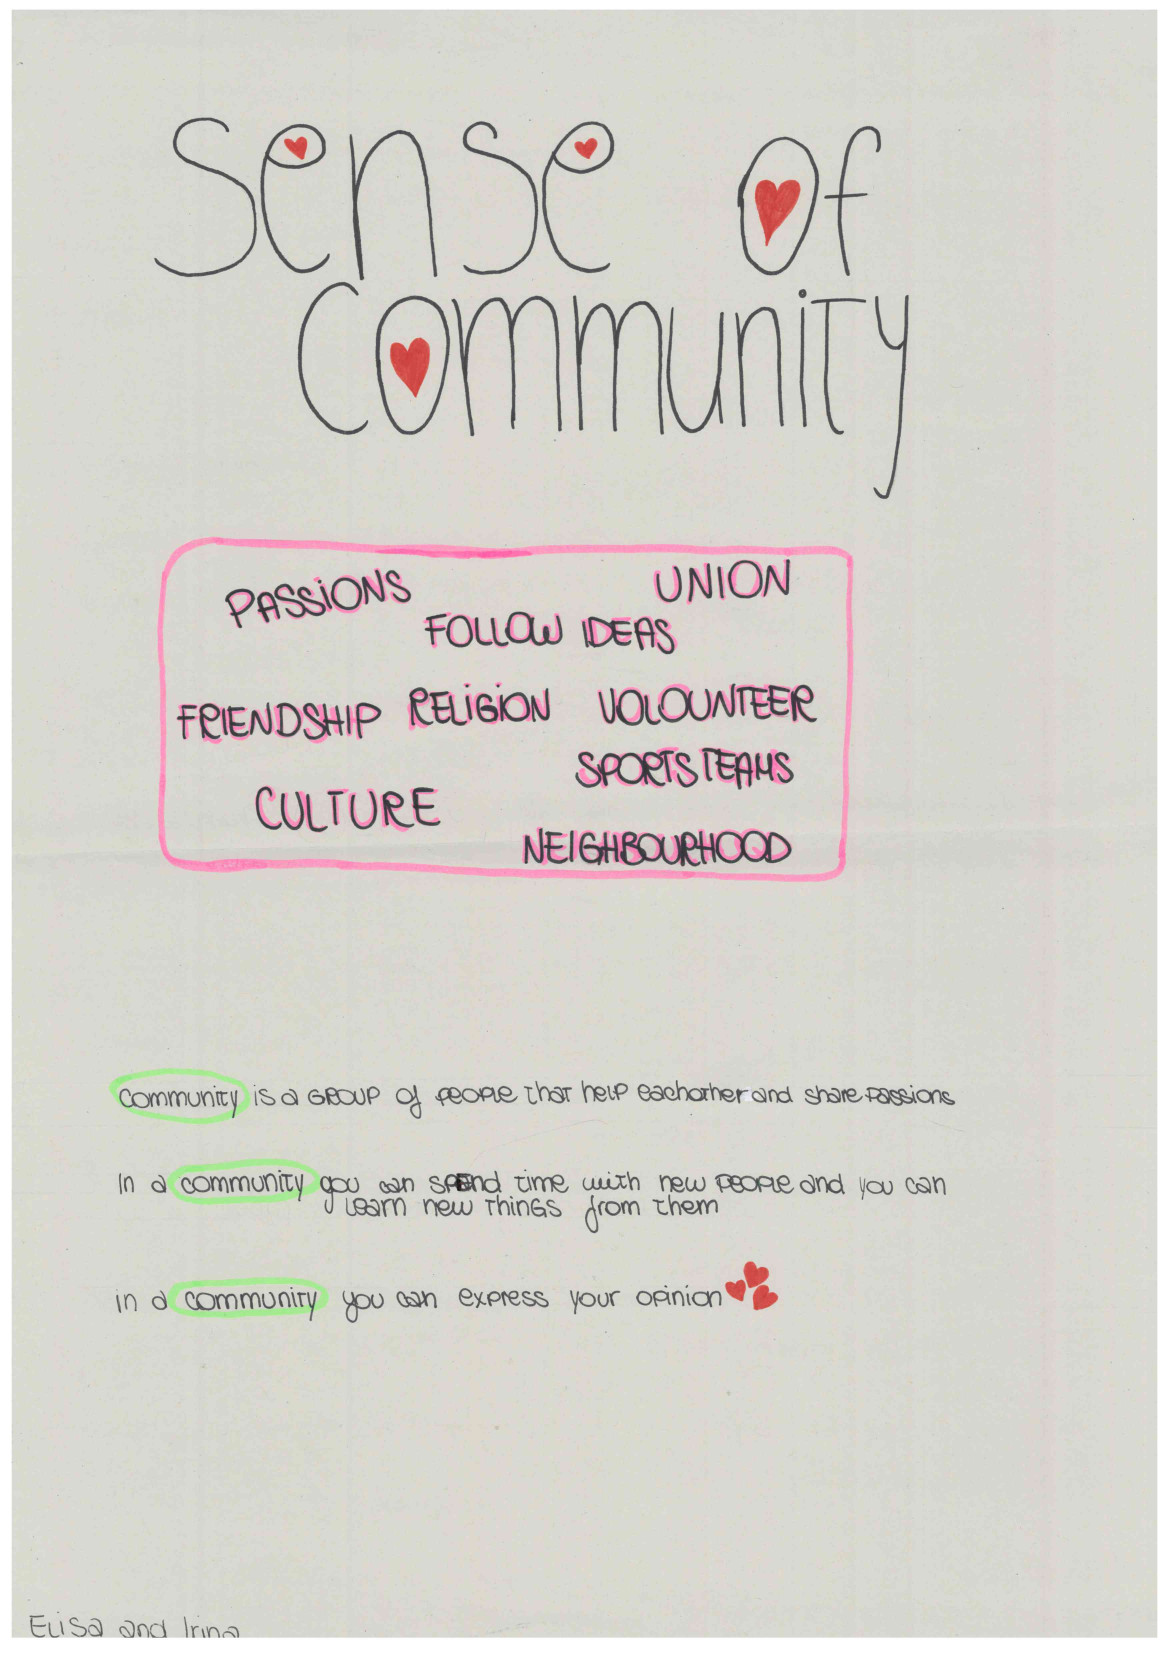 Sense of
Community
PASSIONS
UNION
FOLLOW IDEAS
FRIENDSHIP RELIGION VOLOUNTEER
SPORTS TEAMS
CULTURE
NEIGHBOURHOOD
Community is a GROUP of PEOPLE that help eachother and share passions
In a community you can spend time with new people and you can
learn new things from them
in a community you can express your opinion
Elisa and Irina